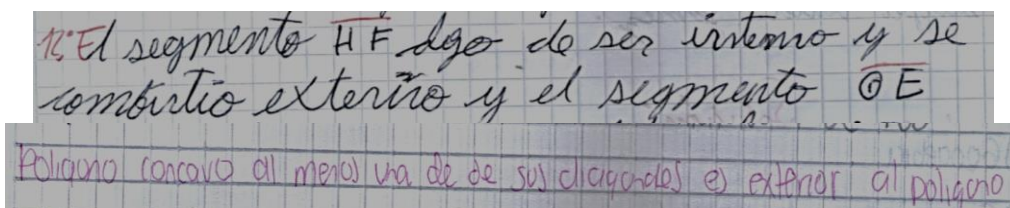 12° El segmento HF dejo de ser interno y se
convirtio externo y el segmento OE
Poligono concavo al menos una de de sus diagonales es exterior al poligono